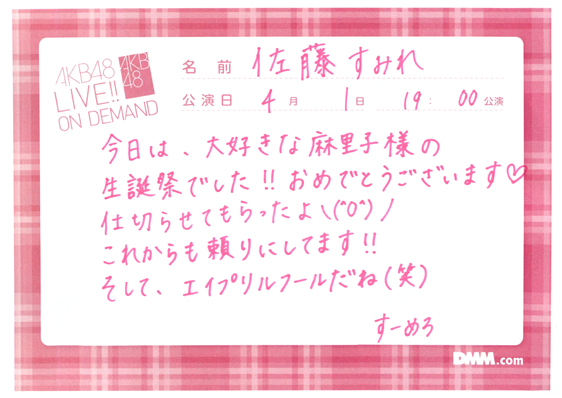 AKB48
LIVE!!
ON DEMAND
AKB
48
名 前 佐藤 すみれ
公演日 4 月 1 日 19 : 00 公演
今日は、大好きな麻里子様の
生誕祭でした!!おめでとうございます♡
仕切らせてもらったよ\(^O^)/
これからも頼りにしてます!!
そして、エイプリルフールだね(笑)
すーめろ
DMM.com